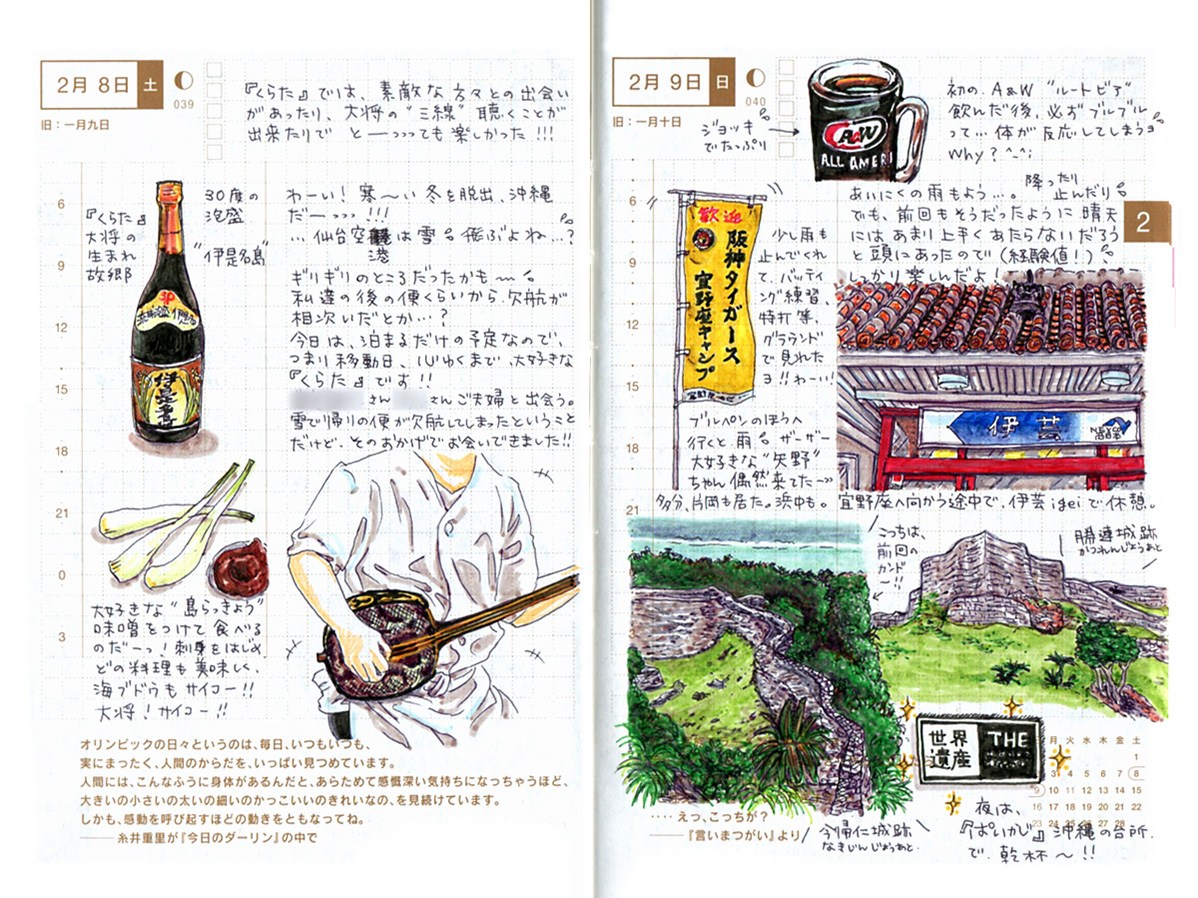 2月 8日 土
039
旧：一月九日
『くらた』では、素敵な方々との出会い
があったり、大将の"三線"聴くことが
出来たりで とーっっっても楽しかった!!!
6
9
12
15
18
21
0
3
『くらた』
大将の
生まれ
故郷
30度の
泡盛
"伊是名島"
伊是名島
わーい！寒〜い冬を脱出、沖縄
だーっっっ!!!
…仙台空港は雪で飛ぶよね…?
ギリギリのところだったかも〜
私達の後の便くらいから、欠航が
相次いだとか…?
今日は、3泊まるだけの予定なので、
つまり移動日、心ゆくまで、大好きな
『くらた』です!!
さん さんご夫婦と出会う。
雪で帰りの便が欠航してしまったということ
だけど、そのおかげでお会いできました!!
大好きな"島らっきょう"
味噌をつけて食べる
のだーっ！刺身をはじめ
どの料理も美味しく、
海ブドウもサイコー!!
大将！サイコー!!
オリンピックの日々というのは、毎日、いつもいつも、
実にまったく、人間のからだを、いっぱい見つめています。
人間には、こんなふうに身体があるんだと、あらためて感慨深い気持ちになっちゃうほど、
大きいの小さいの太いの細いのかっこいいのきれいなの、を見続けています。
しかも、感動を呼び起すほどの動きをともなってね。
――― 糸井重里が『今日のダーリン』の中で
2月 9日 日
040
旧：一月十日
ジョッキ
でたっぷり
A&W
ALL AMERI
初の、A&W "ルートビア"
飲んだ後、必ずブルブル
って…体が反応してしまう
Why? ^_^;
2
6
9
12
15
18
21
あいにくの雨もよう…。降ったり
止んだり
でも、前回もそうだったように晴天
にはあまり上手くあたらないだろう
と頭にあったので（経験値！）
しっかり楽しんだよ！
歓迎
阪神タイガース
宜野座キャンプ
少し雨も
止んでくれ
て、バッティ
ング練習、
特打等、
グラウンド
で見れた
ヨ!!わーい!
伊芸
ブルペンのほうへ
行くと、雨でザーザー
大好きな"矢野"
ちゃん偶然来てたーっ
多分、片岡も居た。浜中も。
宜野座へ向かう途中で、伊芸igeiで休憩。
こっちは、
前回の
カンドー!!
勝連城跡
かつれんじょうあと
世界
遺産
THE
月 火 水 木 金 土
1
3 4 5 6 7 8
9 10 11 12 13 14 15
16 17 18 19 20 21 22
23 24 25 26 27 28
‥‥えっ、こっちが？
――― 『言いまつがい』より
今帰仁城跡
なきじんじょうあと
夜は、
『ぱいかじ』沖縄の台所、
で、乾杯〜!!